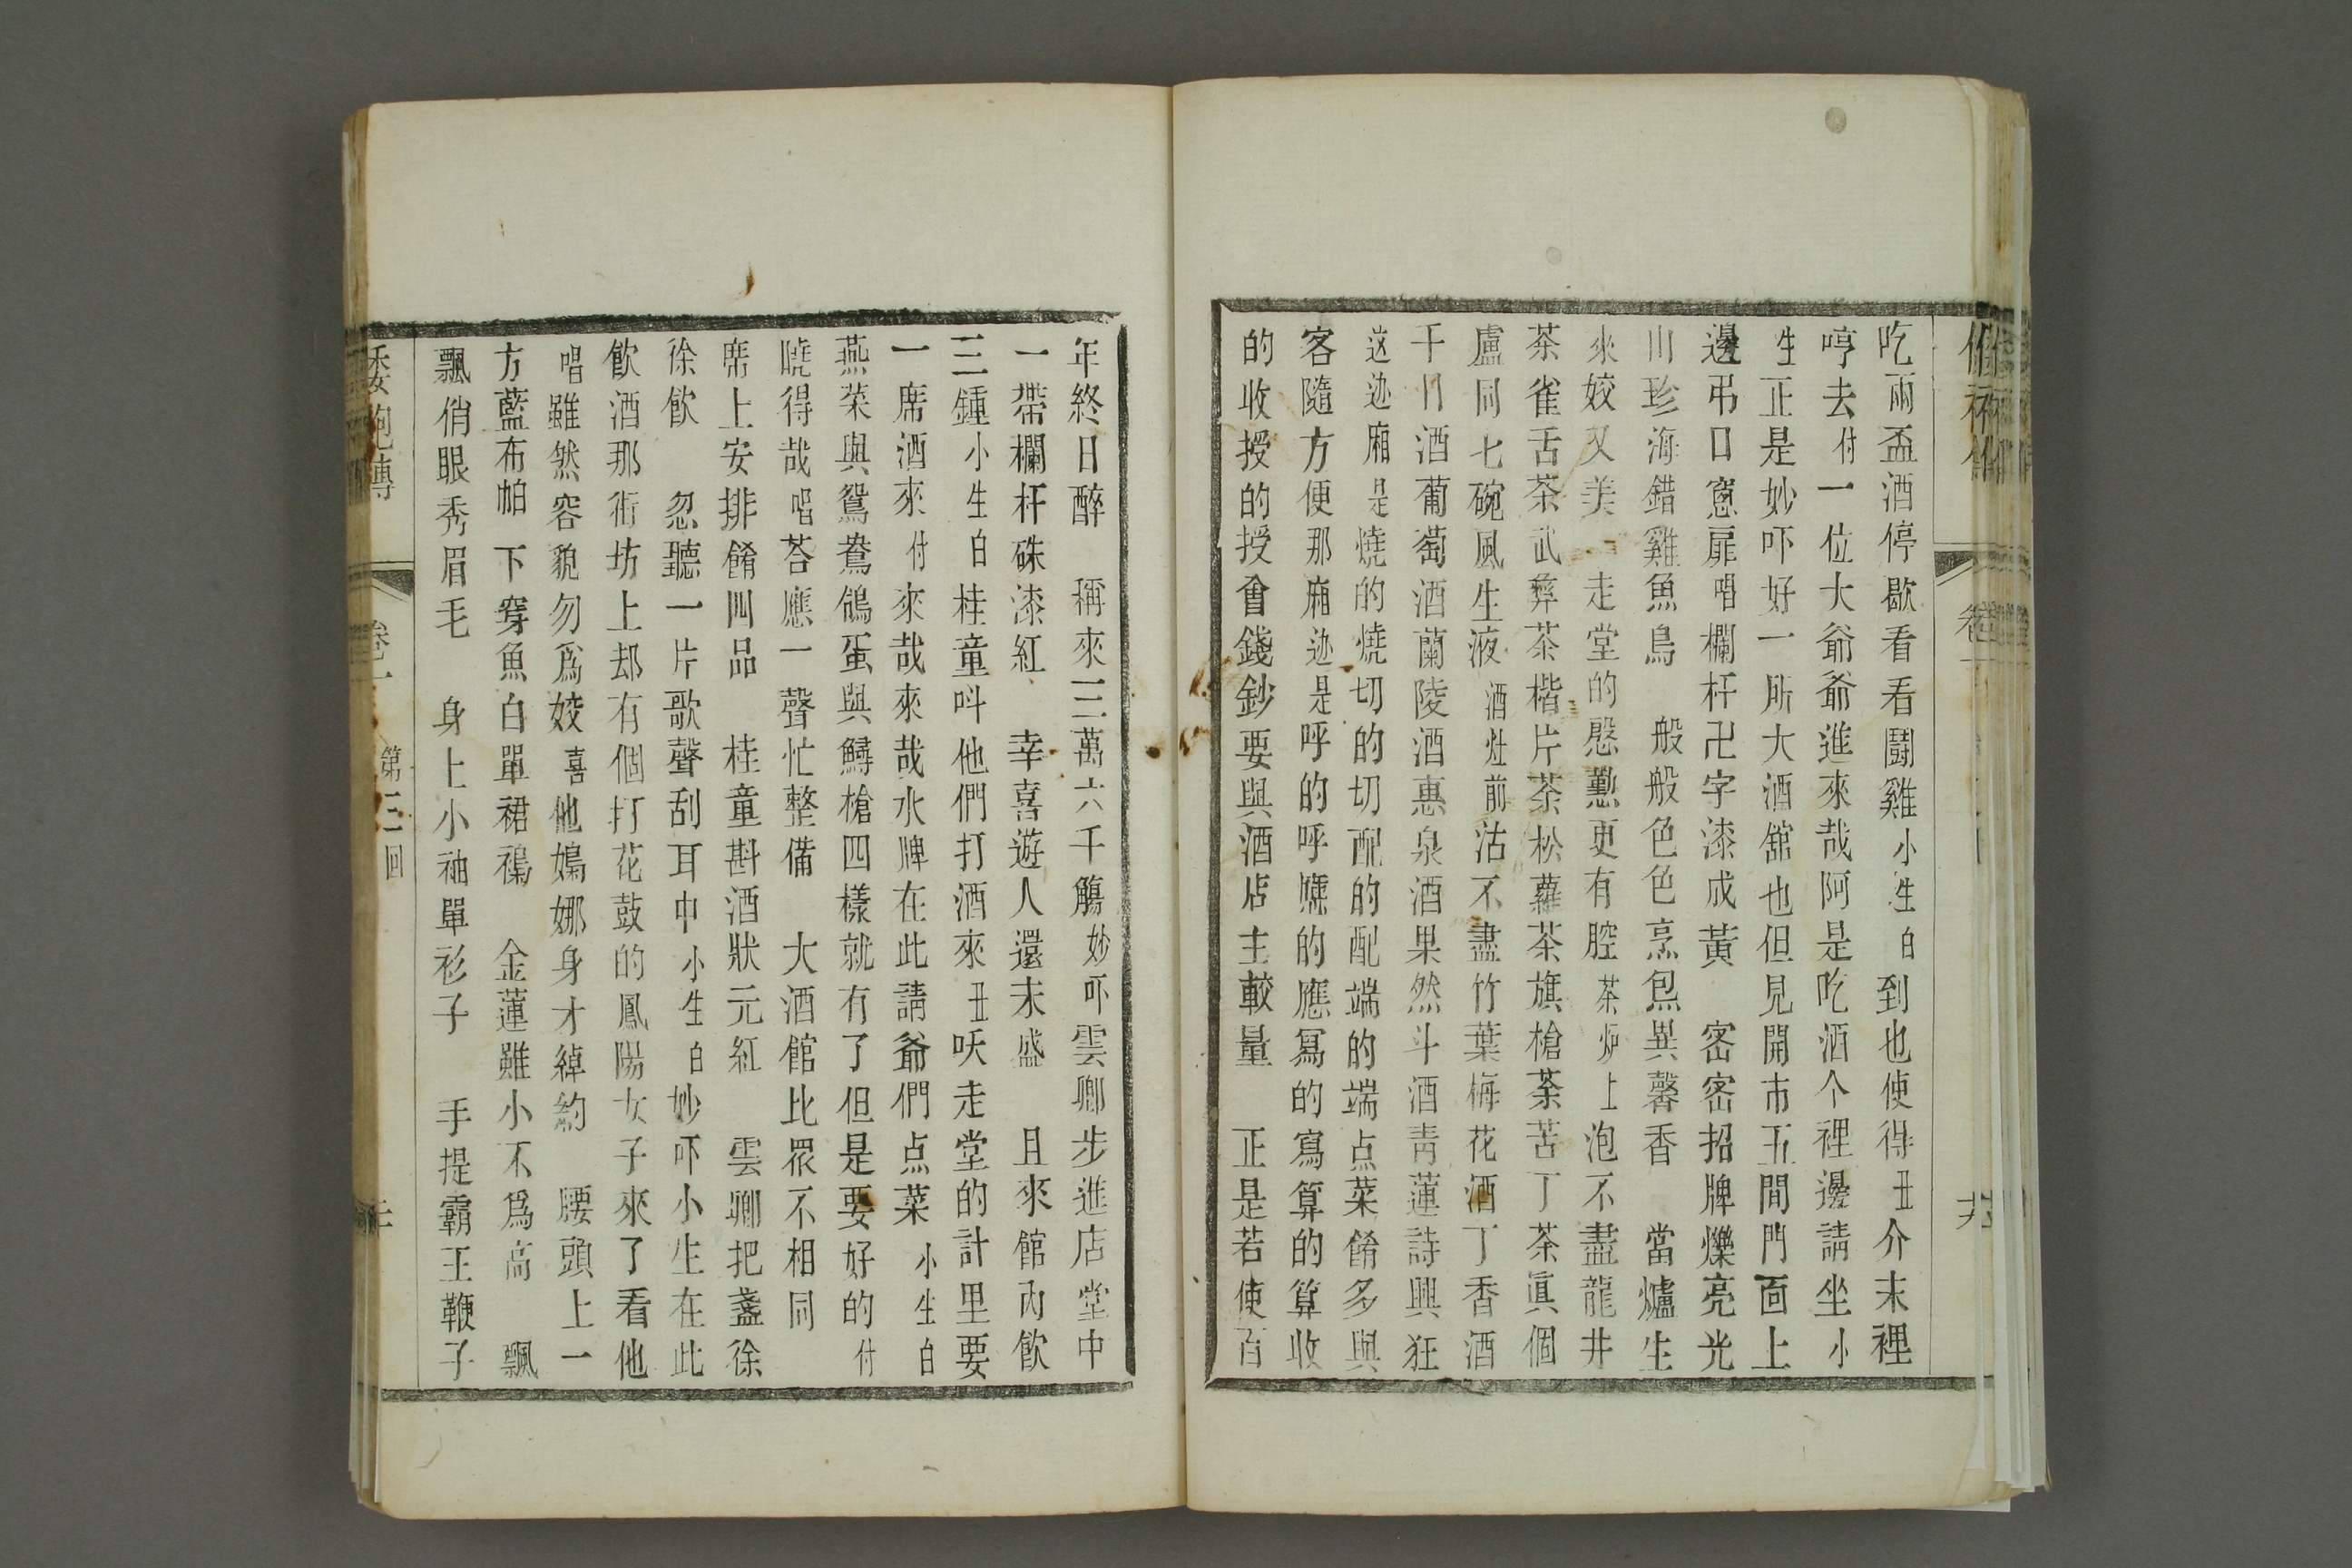 吃兩盃酒停歇看看鬪雞小生白到也使得丑介末裡
哼去付一位大爺爺進來哉阿是吃酒个裡邊請坐小
生正是妙吓好一所大酒舘也但見開市五間門面上
邊弔口窻扉唱欄杆卍字漆成黃　密密招牌爍亮光
山珍海錯雞魚鳥　般般色色烹炰異馨香　當爐生
來姣又美　走堂的慇懃更有腔茶炉上泡不盡龍井
茶雀舌茶武彝茶楷片茶松蘿茶旗槍荼苦丁茶眞個
盧同七碗風生液酒灶前沽不盡竹葉梅花酒丁香酒
千日酒葡萄酒蘭陵酒惠泉酒果然斗酒青蓮詩興狂
这边廂是燒的燒切的切配的配端的端点菜餚多與
客隨方便那廂边是呼的呼應的應冩的寫算的算收
的收授的授會錢鈔要與酒店主較量　正是若使百
年終日醉　稱來三萬六千觴妙吓雲卿步進店堂中
一帶欄杆硃漆紅　幸喜遊人還未盛　且來館內飲
三鍾小生白桂童呌他們打酒來丑吷走堂的計里要
一席酒來付來哉來哉水牌在此請爺們点菜小生白
燕菜與鴛鴦鴿蛋與鱘槍四樣就有了但是要好的付
曉得哉唱荅應一聲忙整備　大酒館比眾不相同
席上安排餚四品　桂童斟酒狀元紅　雲卿把盞徐
徐飲　忽聽一片歌聲刮耳中小生白妙吓小生在此
飲酒那街坊上却有個打花鼓的鳳陽女子來了看他
唱雖然容貌勿爲姣喜他嫋娜身才綽約　腰頭上一
方藍布帕下穿魚白單裙　金蓮雖小不爲高　飄
飄俏眼秀眉毛　身上小袖單衫子　手提霸王鞭子
卷一　第三回